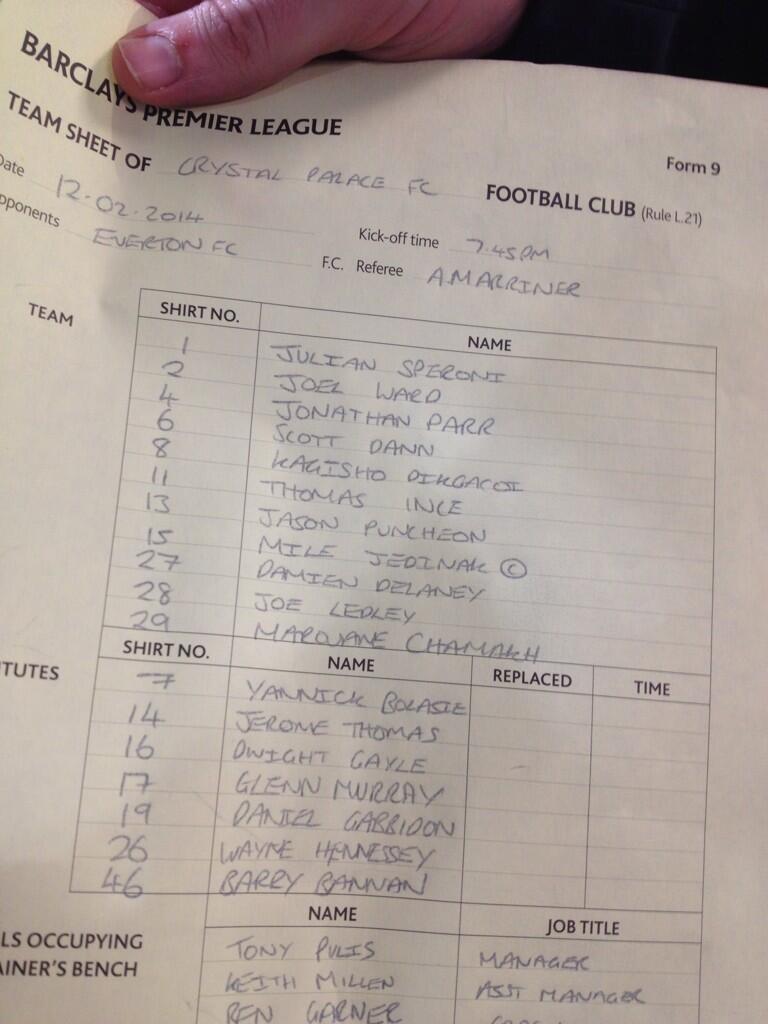 BARCLAYS PREMIER LEAGUE
Form 9
TEAM SHEET OF CRYSTAL PALACE FC FOOTBALL CLUB (Rule L.21)
Date 12.02.2014 Kick-off time 7.45PM
pponents EVERTON FC F.C. Referee A MARRINER
TEAM SHIRT NO. NAME
1 JULIAN SPERONI
2 JOEL WARD
4 JONATHAN PARR
6 SCOTT DANN
8 KAGISHO DIKGACOI
11 THOMAS INCE
13 JASON PUNCHEON
15 MILE JEDINAK ©
27 DAMIEN DELANEY
28 JOE LEDLEY
29 MAROUANE CHAMAKH
TUTES SHIRT NO. NAME REPLACED TIME
7 YANNICK BOLASIE
14 JEROME THOMAS
16 DWIGHT GAYLE
17 GLENN MURRAY
19 DANIEL GABBIDON
26 WAYNE HENNESSEY
46 BARRY BANNAN
LS OCCUPYING NAME JOB TITLE
AINER'S BENCH TONY PULIS MANAGER
KEITH MILLEN ASST MANAGER
BEN GARNER